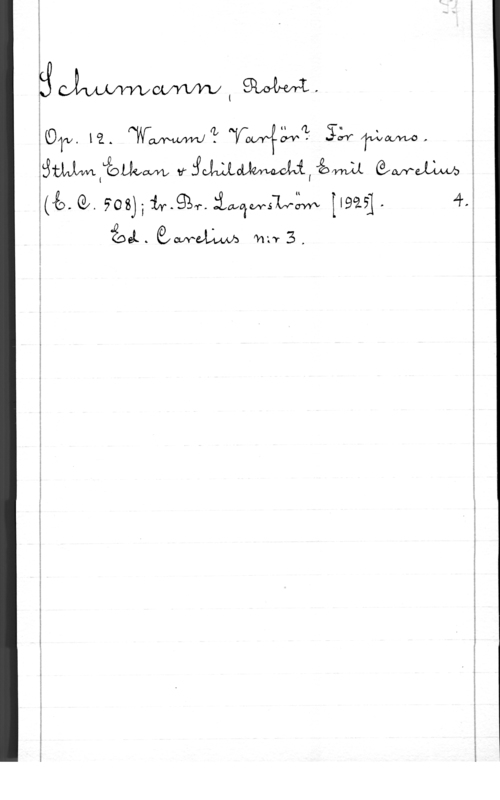 Schumann, Robert.
Op. 12. Warum? Varför? För piano.
Sthlm, Elkan & Schildknecht, Emil Carelius
(E. C. 508); tr. Br. Lagerström [1925]. 4.
Ed. Carelius n:r 3.